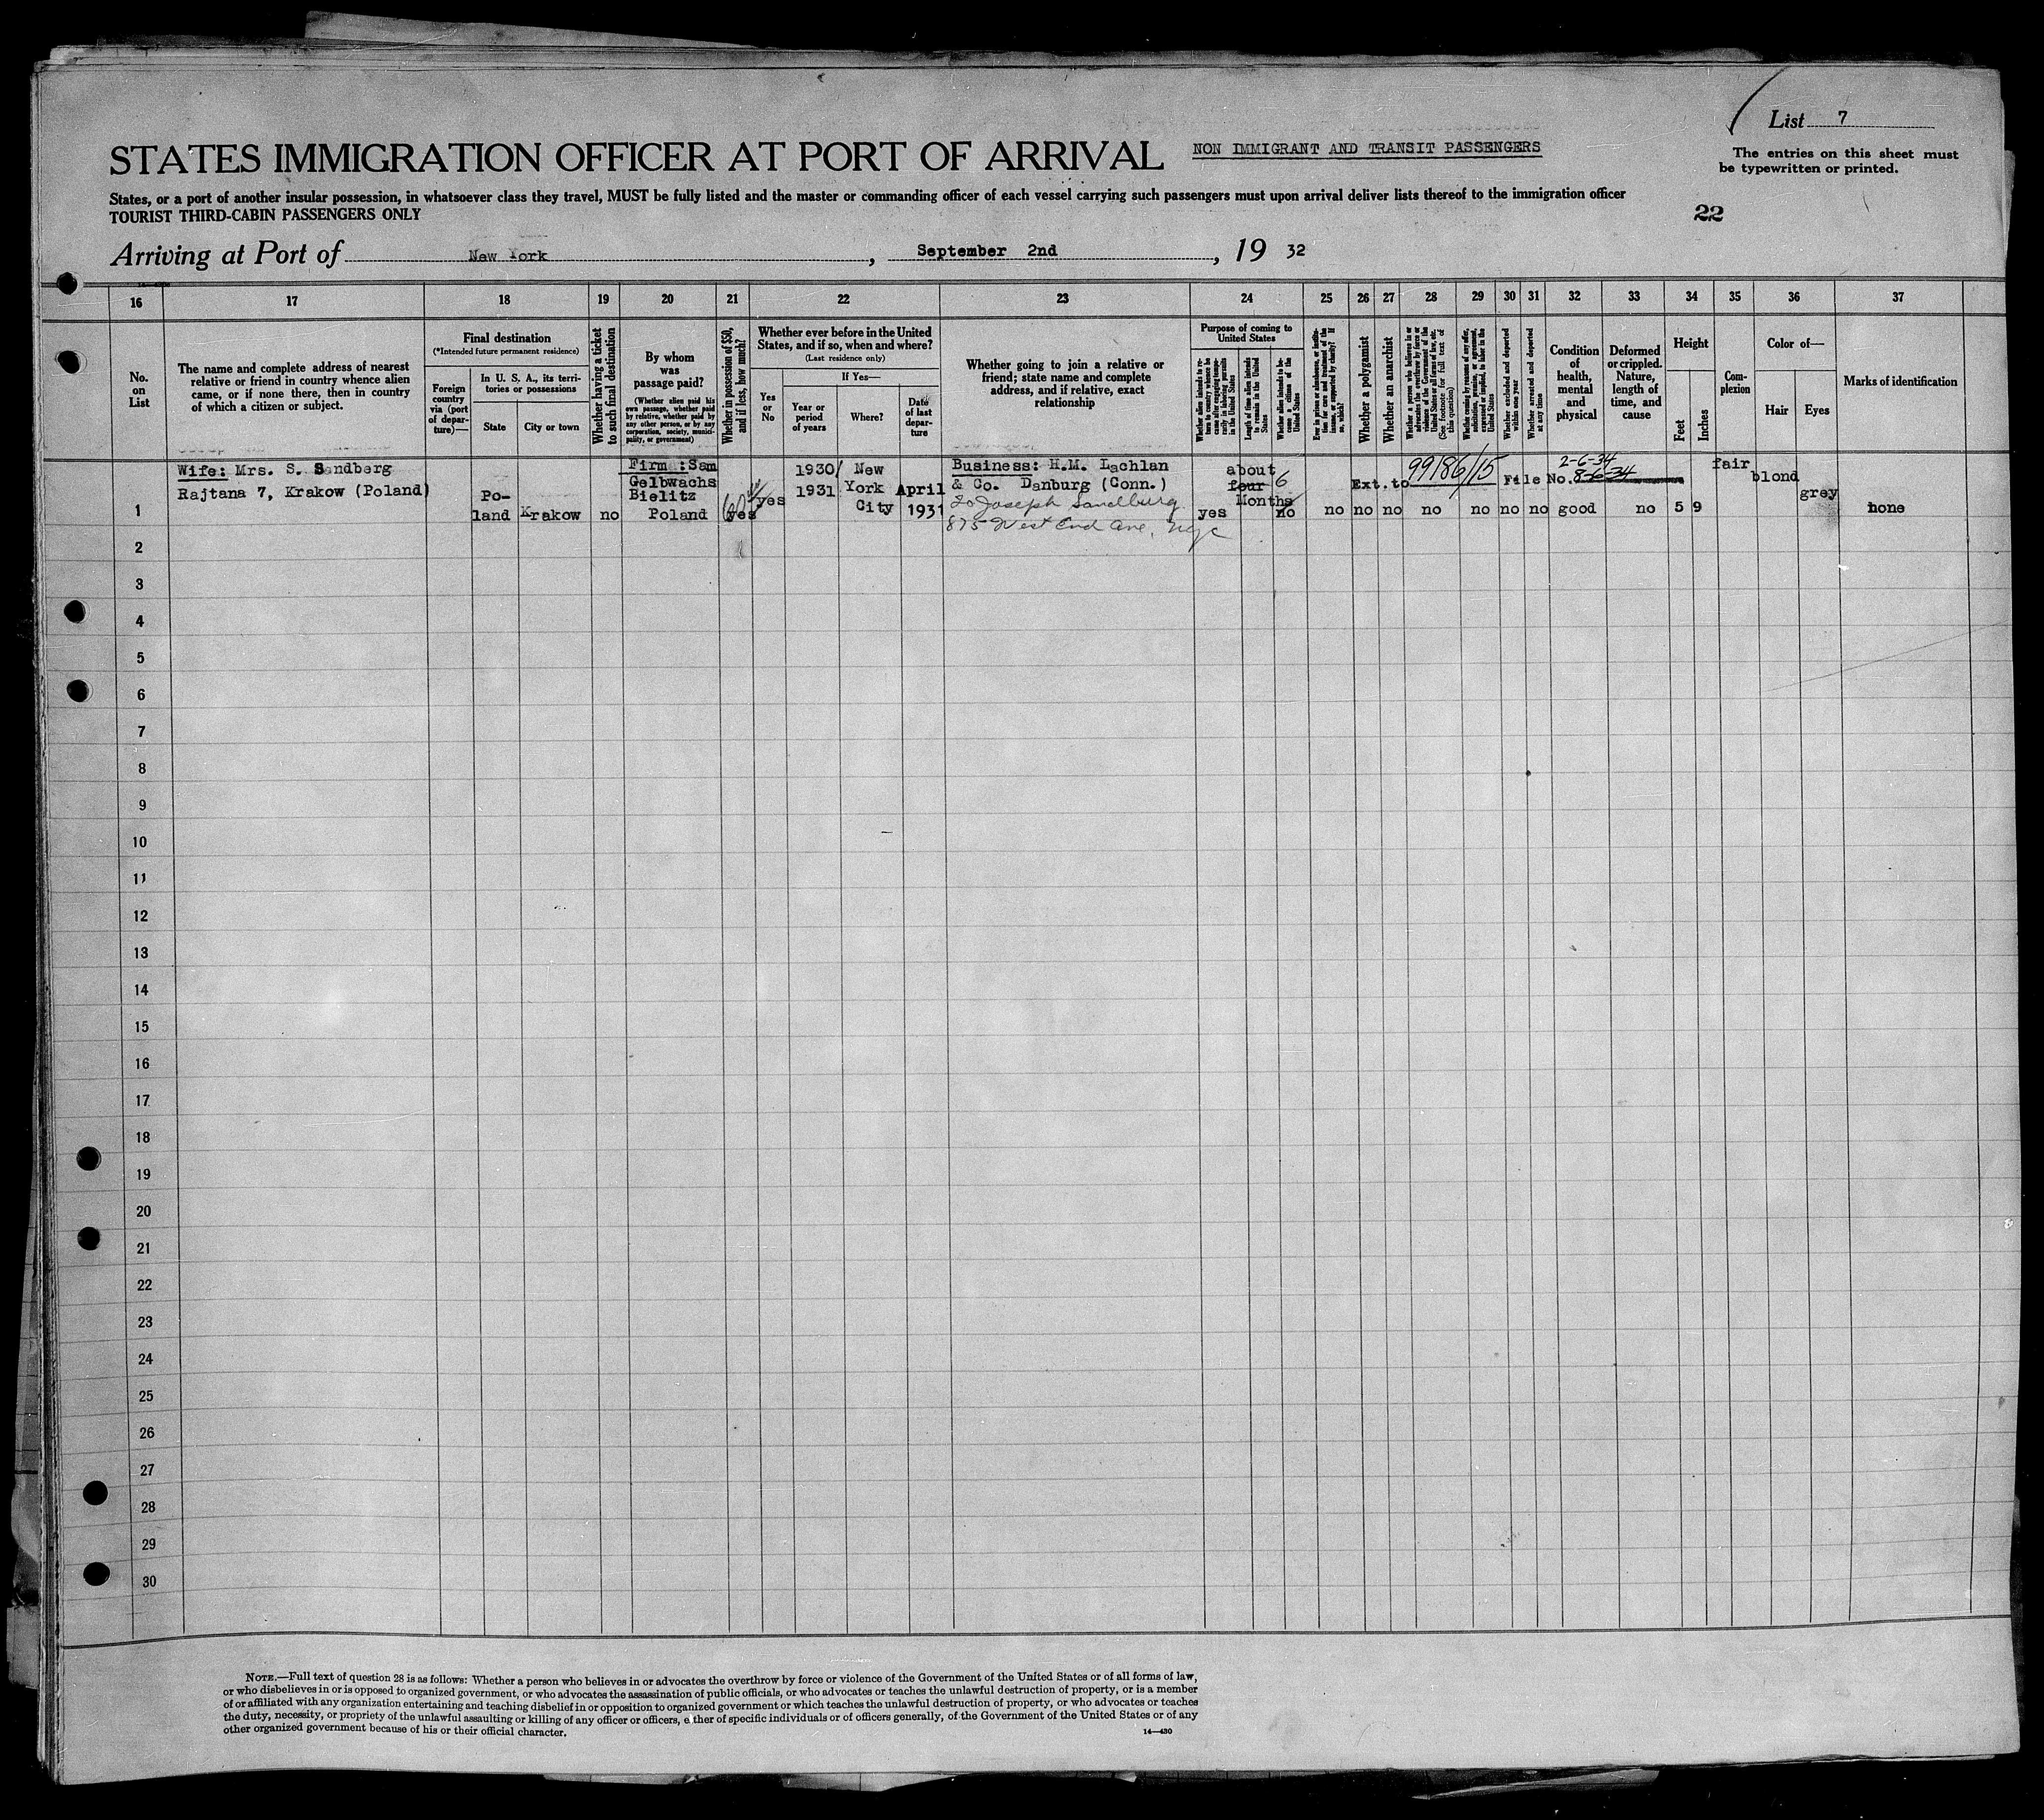 List 7
STATES IMMIGRATION OFFICER AT PORT OF ARRIVAL
NON IMMIGRANT AND TRANSIT PASSENGERS
The entries on this sheet must
be typewritten or printed.
States, or a port of another insular possession, in whatsoever class they travel, MUST be fully listed and the master or commanding officer of each vessel carrying such passengers must upon arrival deliver lists thereof to the immigration officer
TOURIST THIRD-CABIN PASSENGERS ONLY
22
Arriving at Port of New York, September 2nd, 19 32
16 17 18 19 20 21 22 23 24 25 26 27 28 29 30 31 32 33 34 35 36 37
No.
on
List
The name and complete address of nearest
relative or friend in country whence alien
came, or if none there, then in country
of which a citizen or subject.
Final destination
(*Intended future permanent residence)
Foreign
country
via (port
of depar-
ture)—
In U. S. A., its terri-
tories or possessions
State
City or town
Whether having a ticket
to such final destination
By whom
was
passage paid?
(Whether alien paid his
own passage, whether paid
by relative, whether paid by
any other person, or by any
corporation, society, munici-
pality, or government)
Whether in possession of $50,
and if less, how much?
Whether ever before in the United
States, and if so, when and where?
(Last residence only)
Yes
or
No
If Yes—
Year or
period
of years
Where?
Date
of last
depar-
ture
Whether going to join a relative or
friend; state name and complete
address, and if relative, exact
relationship
Purpose of coming to
United States
Whether alien intends to re-
turn to country whence he
came after engaging tempo-
rarily in laboring pursuits
in the United States
Length of time alien intends
to remain in the United
States
Whether alien intends to be-
come a citizen of the
United States
Ever in prison or almshouse, or institu-
tion for care and treatment of the
insane, or supported by charity? If
so, which?
Whether a polygamist
Whether an anarchist
Whether a person who believes in or
advocates the overthrow by force or
violence of the Government of the
United States or all forms of law, etc.
(See footnote for full text of
this question)
Whether coming by reasons of any offer,
solicitation, promise, or agreement,
expressed or implied, to labor in the
United States
Whether excluded and deported
within one year
Whether arrested and deported
at any time
Condition
of
health,
mental
and
physical
Deformed
or crippled.
Nature,
length of
time, and
cause
Height
Feet
Inches
Com-
plexion
Color of—
Hair
Eyes
Marks of identification
Wife: Mrs. S. Sandberg
Rajtana 7, Krakow (Poland)
1
Po-
land
Krakow
no
Firm :Sam
Gelbwachs
Bielitz
Poland
yes
yes
1930/
1931
New
York
City
April
1931
Business: H.M. Lachlan
& Co. Danburg (Conn.)
Joseph Sandburg
875 West End Ave, nyc
yes
about
four 6
Months
no
Ext. to 99186/15 File No. 8-6-34
2-6-34
no no no no no no no good no 5 9
fair
blond
grey
none
2
3
4
5
6
7
8
9
10
11
12
13
14
15
16
17
18
19
20
21
22
23
24
25
26
27
28
29
30
NOTE.—Full text of question 28 is as follows: Whether a person who believes in or advocates the overthrow by force or violence of the Government of the United States or of all forms of law,
or who disbelieves in or is opposed to organized government, or who advocates the assassination of public officials, or who advocates or teaches the unlawful destruction of property, or is a member
of or affiliated with any organization entertaining and teaching disbelief in or opposition to organized government or which teaches the unlawful destruction of property, or who advocates or teaches
the duty, necessity, or propriety of the unlawful assaulting or killing of any officer or officers, either of specific individuals or of officers generally, of the Government of the United States or of any
other organized government because of his or their official character.
14—430